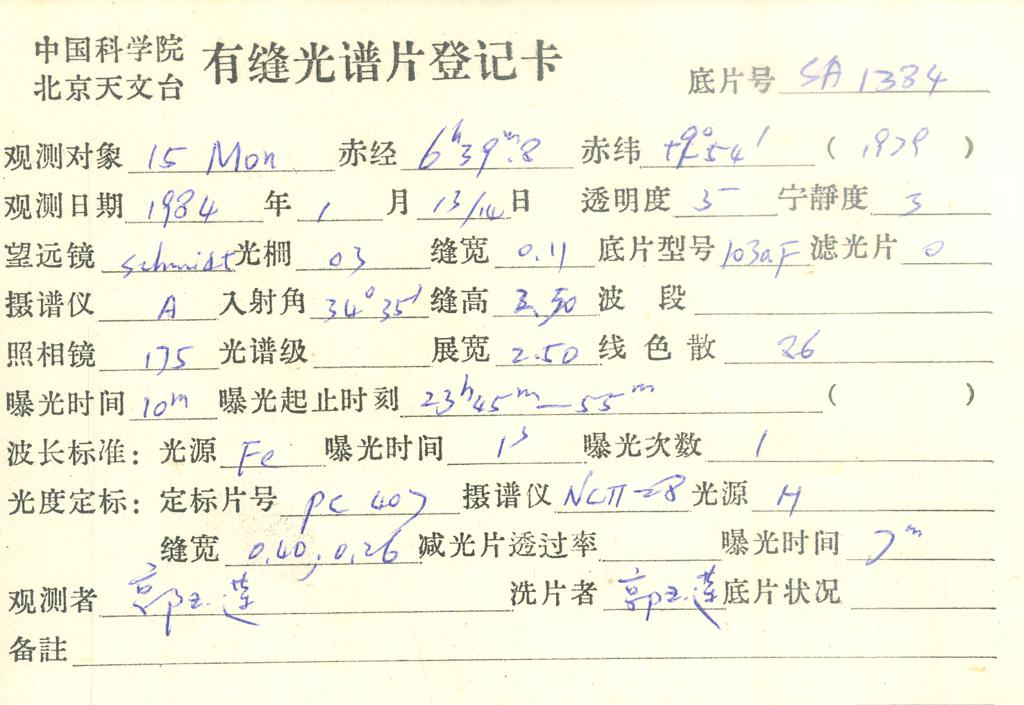 中国科学院
北京天文台
有缝光谱片登记卡
底片号 SA 1384
观测对象 15 Mon 赤经 6ʰ39ᵐ.8 赤纬 +9°54′ ( 1979 )
观测日期 1984 年 1 月 13/14 日 透明度 5 宁静度 3
望远镜 Schmidt 光栅 03 缝宽 0.11 底片型号 103aF 滤光片 0
摄谱仪 A 入射角 34°35′ 缝高 波段
照相镜 175 光谱级 展宽 2.50 线色散 26
曝光时间 10ᵐ 曝光起止时刻 23ʰ45ᵐ—55ᵐ ( )
波长标准: 光源 Fe 曝光时间 1ˢ 曝光次数 1
光度定标: 定标片号 PC 407 摄谱仪 光源 H
缝宽 0.40; 0.26 减光片透过率 曝光时间 7ᵐ
观测者 郭玉莲 洗片者 郭玉莲 底片状况
备註